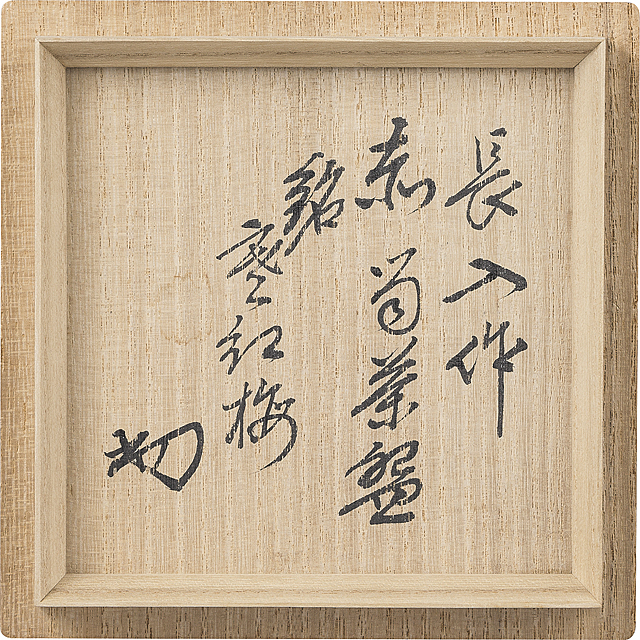 長入作
赤筒茶盌
銘
寒紅梅